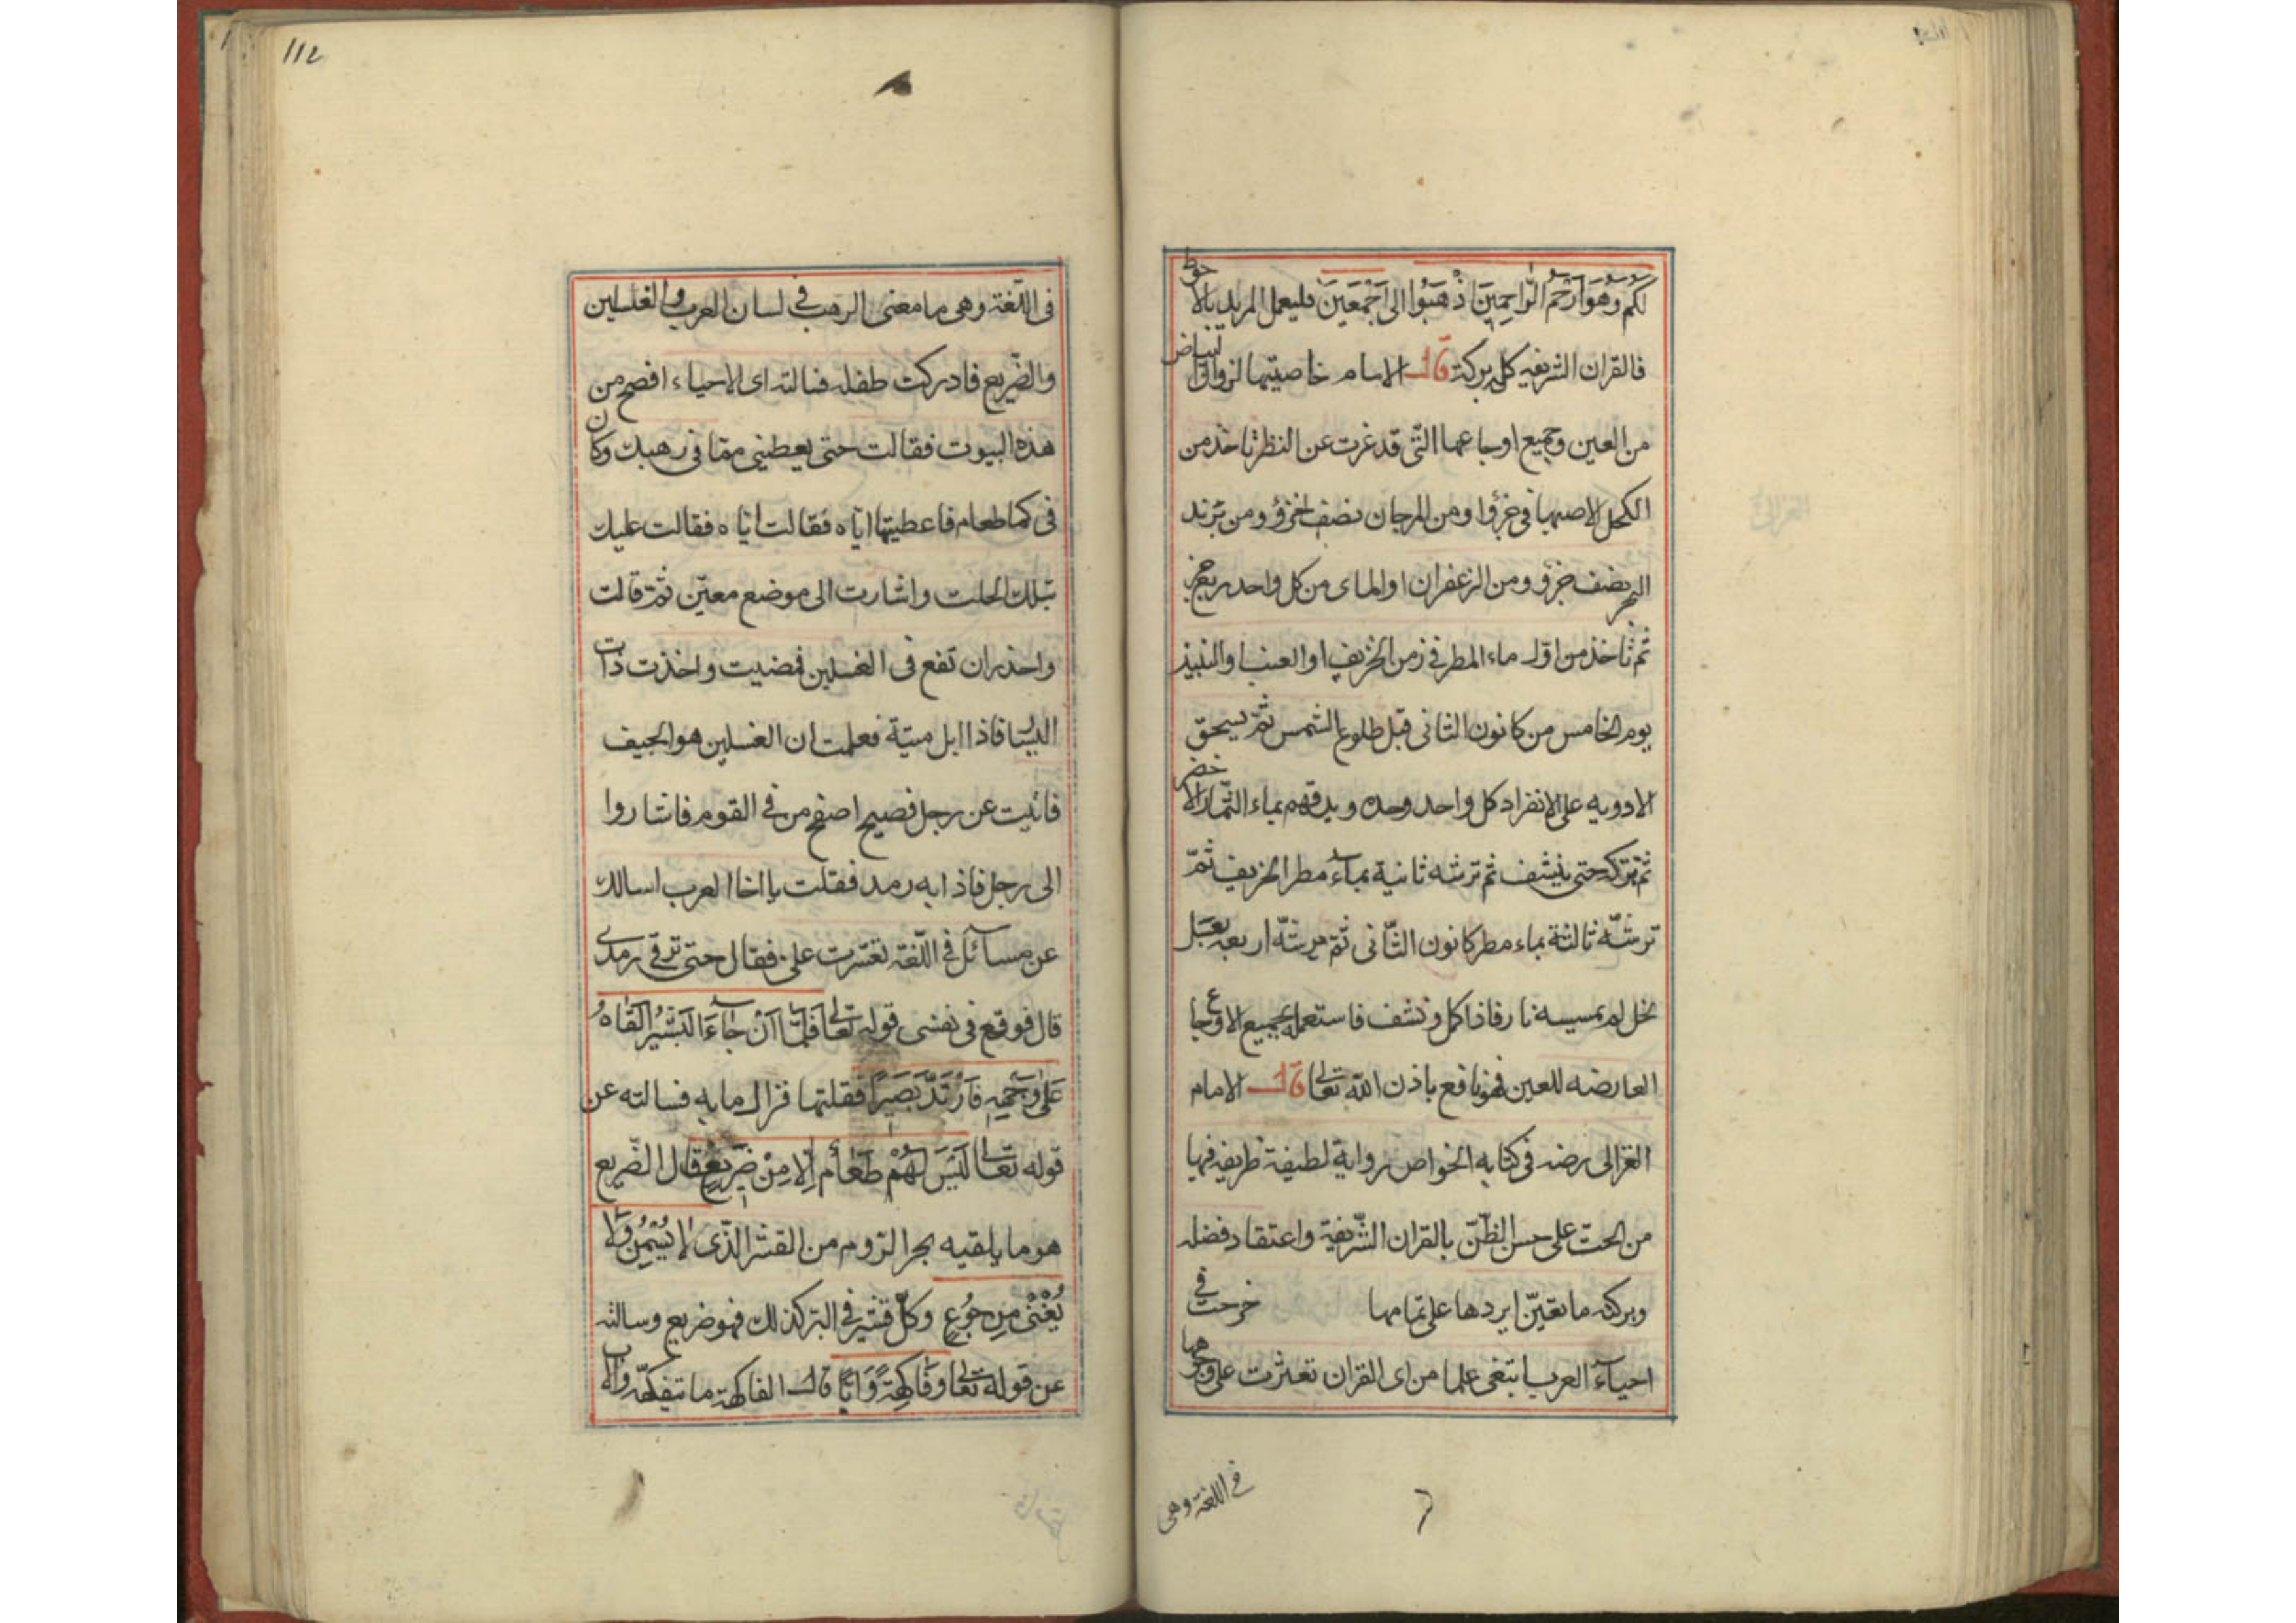 لكم وهو ارحم الراحمين اذهبوا الى اجمعين فليعمل المريد بالاحوط
فالقران الشريفه كله بركة قال الامام خاصيتها لزوال البياض
من العين وجميع اوجاعها التى قد غرت عن النظر تاخذ من
الكحل الاصبهانى جزؤا ومن المرجان نصف الجزؤ ومن بزند
البحر نصف جزؤ ومن الزعفران من كل واحد ربع جز
ثم تاخذ من اوّل ماء المطر فى زمن الخريف
يوم الخامس من كانون الثانى قبل طلوع الشمس ثمّ يسحق
الادويه على الانفراد كل واحد وحده ويدقهم بماء الثّمار الاخضر
ثم تتركه حتى ينشف ثم ترشه ثانية بماء مطر الخريف ثمّ
ترشّه ثالثة بماء مطر كانون الثّانى ثمّ ترشّه اربعه بعسل
بخل لم يمسيسه نار فاذا كمل ونشف فاستعمله لجميع الاوجاع
العارضه للعين فهو نافع باذن الله تعالى قال الامام
الغزالى رضه فى كتابه الخواص برواية لطيفة ظريفه فيها
من الحث على حسن الظّنّ بالقران الشّريفة واعتقاد فضله
وبركته ما تعيّن ايردها على تمامها خرجت فى
احياء العرب ابتغى علما من اى القران تعثرت على وجوهها
فى اللغة وهى
112
فى اللّغة وهى ما معنى الرهب فى لسان العرب والغسلين
والضّريع فادركت طفله فسالته اى الاحياء افصح من
هذه البيوت فقالت حتى يعطينى مما فى رهبك وكان
فى كما طعام فاعطيتها ايّاه فقالت ايّاه فقالت عليك
بتلك الحلت واشارت الى موضع معيّن ثمّ قالت
واحذر ان تقع فى الغسلين فمضيت واخذت ذات
اليسّا فاذا ابل ميتة فعلمت ان الغسلين هو الجيف
فاتيت عن رجل فصيح اصفح من فى القوم فاشاروا
الى رجل فاذا به رمد فقلت يا اخا العرب اسالك
عن مسائل فى اللّغة تعسّرت على فقال حتى ترقى رمدى
قال فوقع فى نفسى قوله تعالى فَلَمَّا اَنْ جَاءَ الْبَشِيرُ اَلْقَاهُ
عَلَى وَجْهِهِ فَارْتَدَّ بَصِيرًا فقلتها فزال ما به فسالته عن
قوله تعالى لَيْسَ لَهُمْ طَعَامٌ اِلَّا مِنْ ضَرِيعٍ قال الضّريع
هو ما يلقيه بحر الرّوم من القشر الذّى لَا يُسْمِنُ وَلَا
يُغْنِى مِنْ جُوعٍ وكلّ قشر فى البرّ كذلك فهو ضريع وسالته
عن قوله تعالى وَفَاكِهَةً وَاَبًّا قال الفاكهة ما تتفكّه والاب